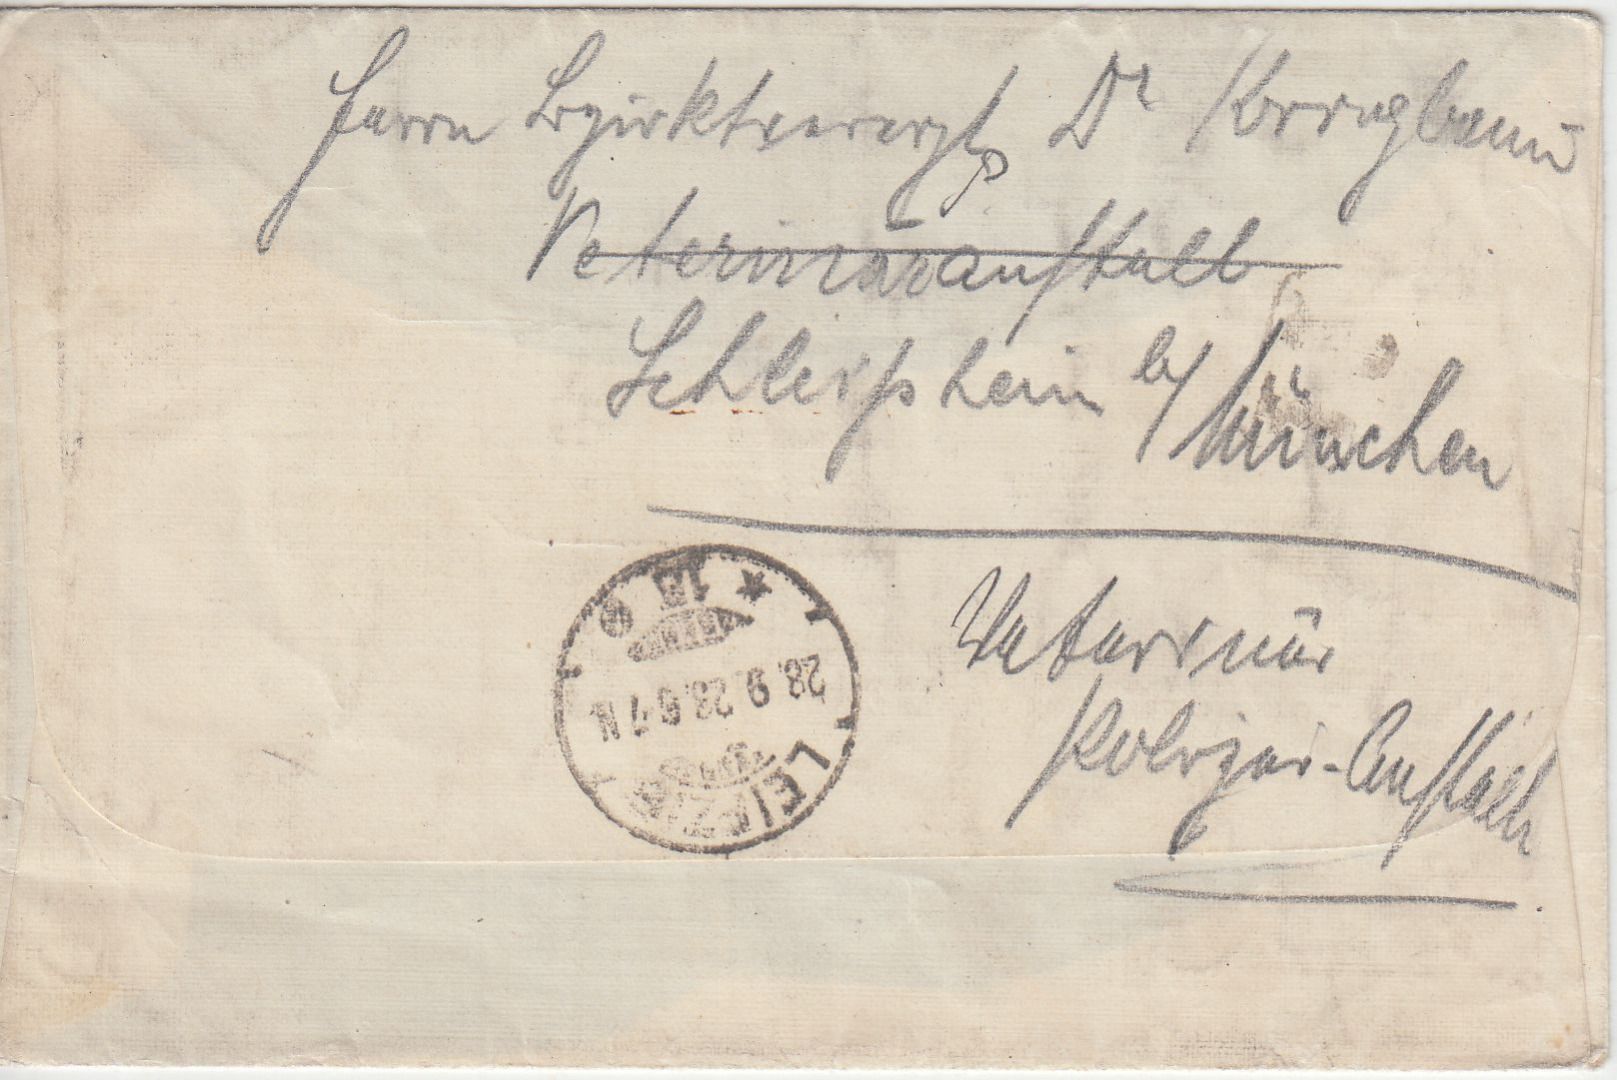 Herrn Bezirkstierarzt Dr
Veterinäranstalt
Schleißheim b/ München
Veterinär
Polizei-Anstalt
LEIPZIG
28.9.28.6-7N.
* 13